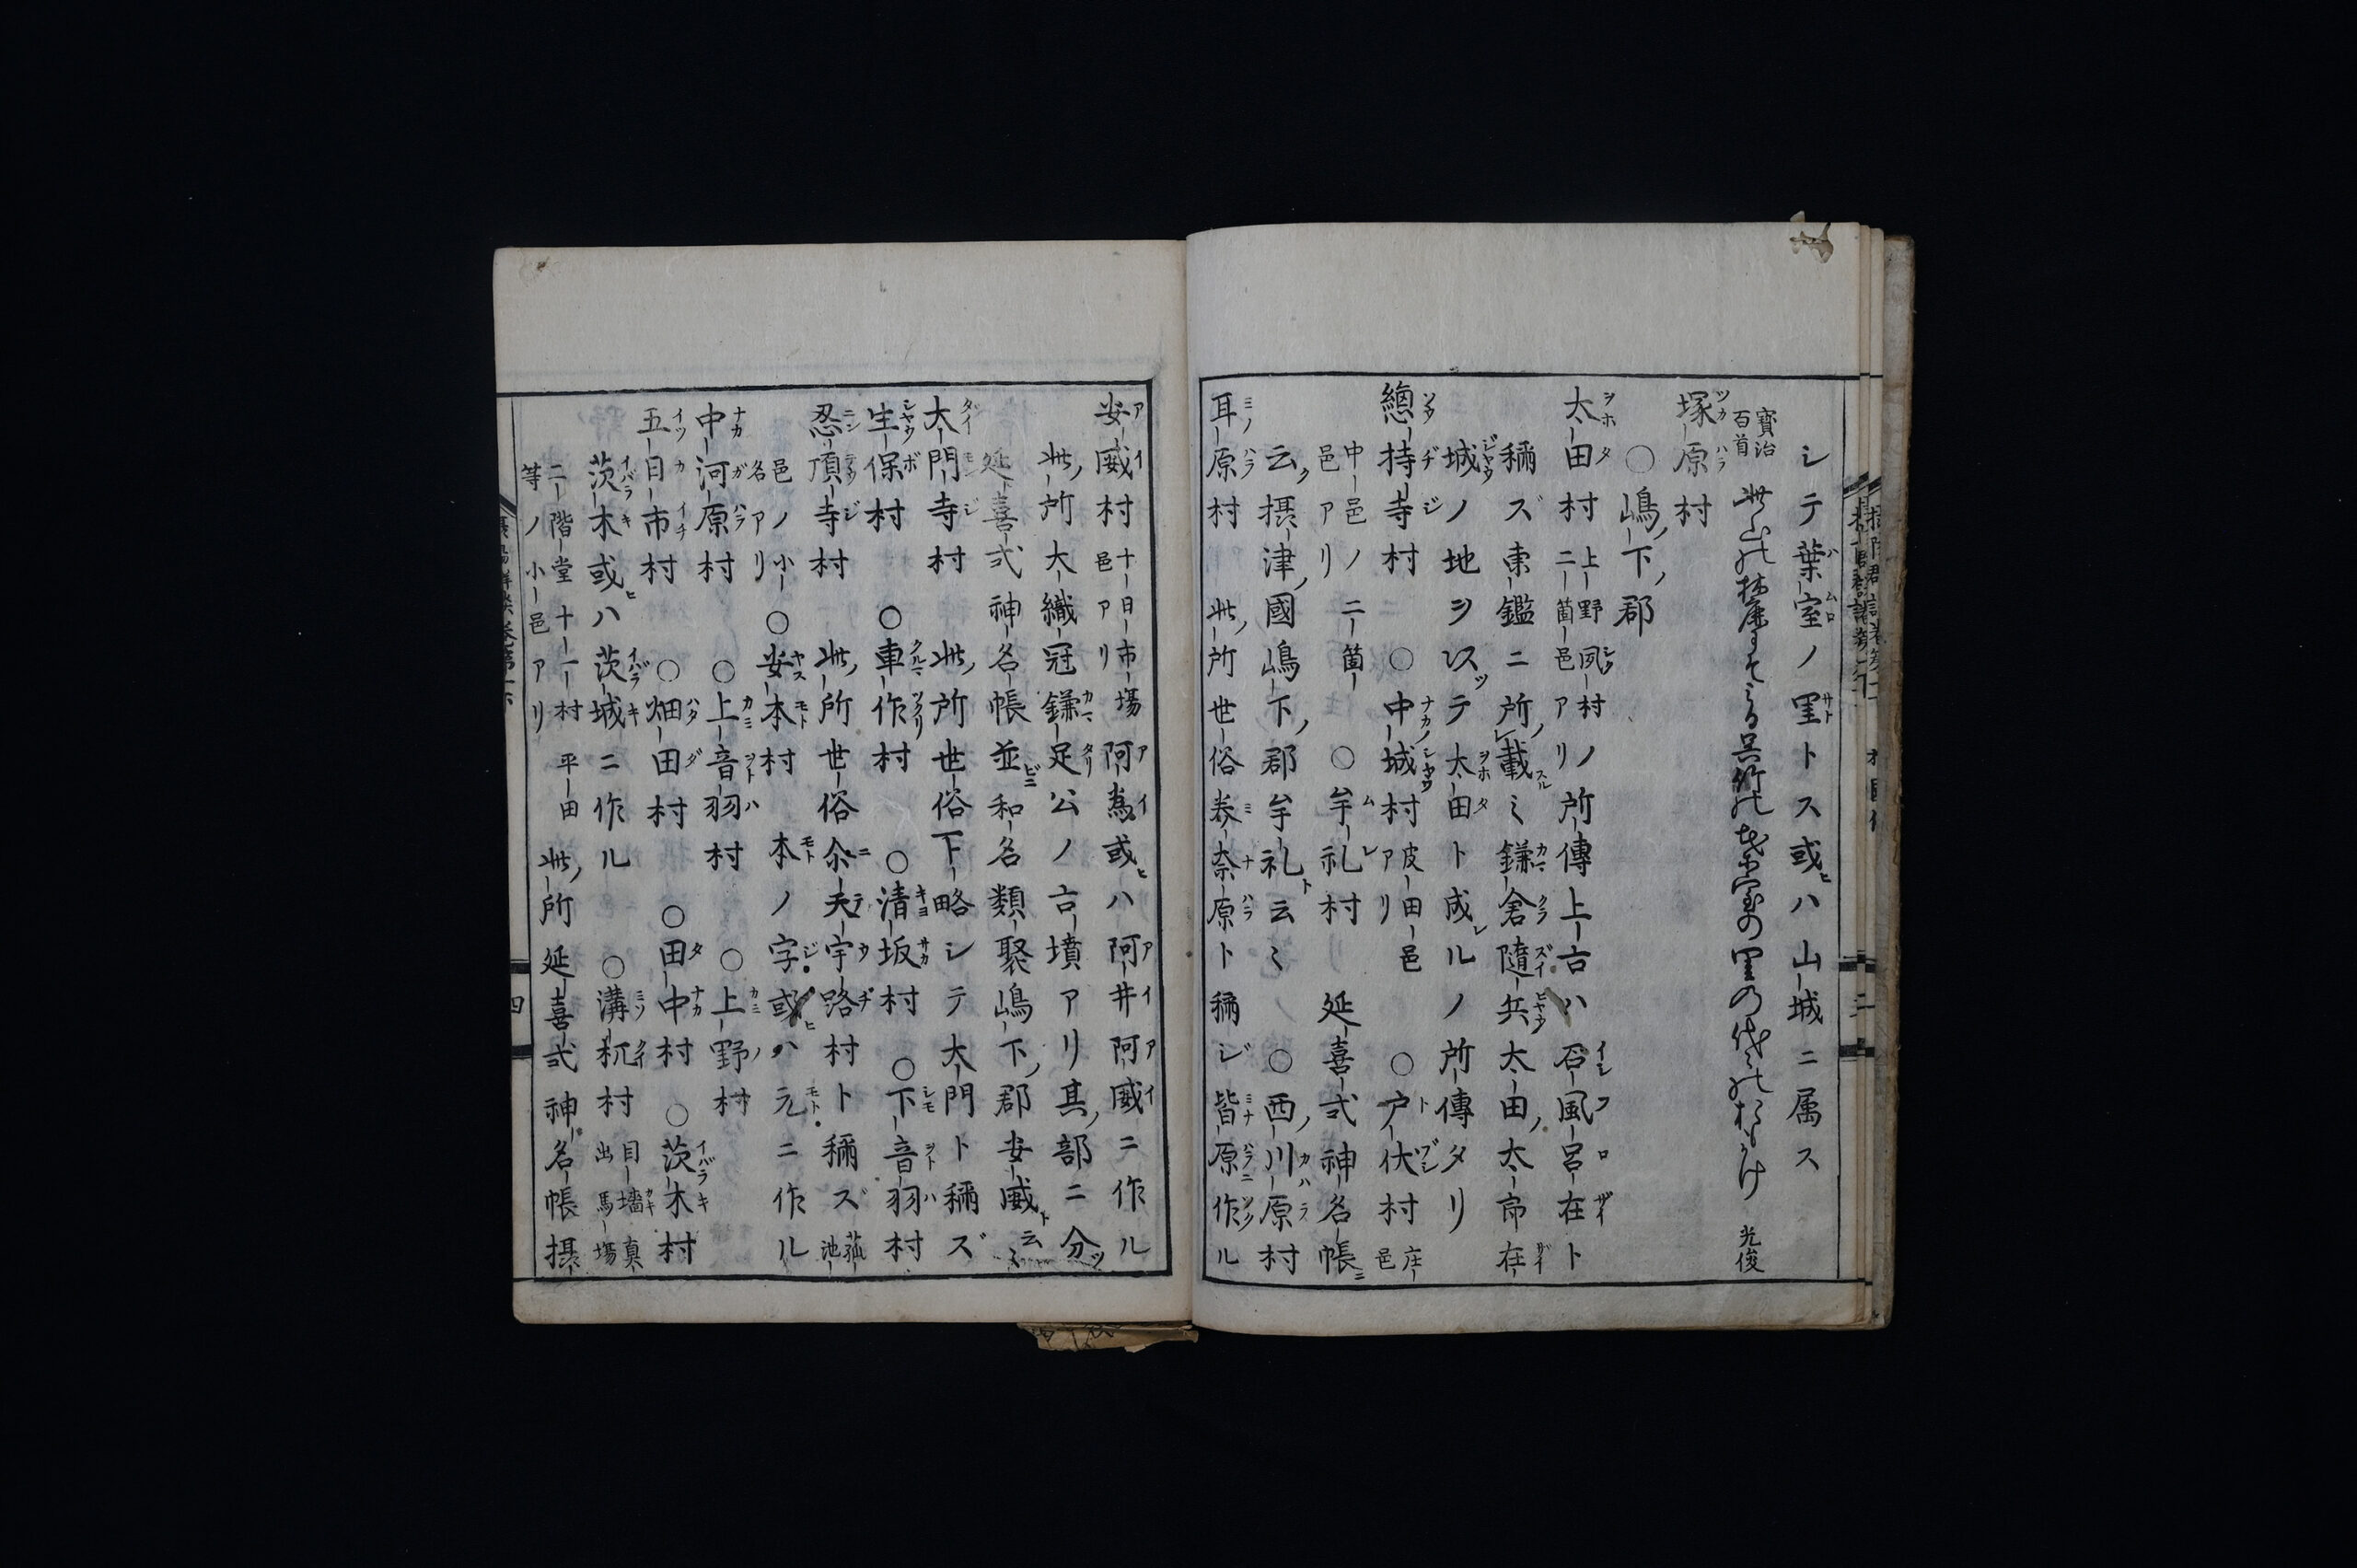 シテ葉室ノ里トス或ハ山城ニ属ス
寶治百首
光俊
塚原村
○嶋下郡
太田村 上野夙村ノ二箇邑アリ 所傳上古ハ石風呂在ト
稱ズ東鑑ニ所載ミ鎌倉隨兵太田太郎在
城ノ地ヲ以テ太田ト成ルノ所傳タリ
總持寺村 ○中城村 皮田邑アリ ○戸伏村 庄邑
中邑ノ二箇邑アリ ○牟礼村 延喜式神名帳ニ
云摂津國嶋下郡牟礼ト云ミ ○西川原村
耳原村 此所世俗美奈原ト稱シ皆原作ル
安威村 十日市場邑アリ 阿為或ハ阿井阿威ニ作ル
此所大織冠鎌足公ノ古墳アリ其部ニ分ツ
延喜式神名帳並ニ和名類聚嶋下郡安威ト云ミ
大門寺村 此所世俗下略シテ大門ト稱ズ
生保村 ○車作村 ○清坂村 ○下音羽村
忍頂寺村 此所世俗尒天宇路村ト稱ズ 菰池
邑ノ小名アリ ○安本村 本ノ字或ハ元ニ作ル
中河原村 ○上音羽村 ○上野村
五日市村 ○畑田村 ○田中村 ○茨木村
茨木或ハ茨城ニ作ル ○溝杭村 目墻真出馬場
二階堂十一村平田等ノ小邑アリ 此所延喜式神名帳摂
四